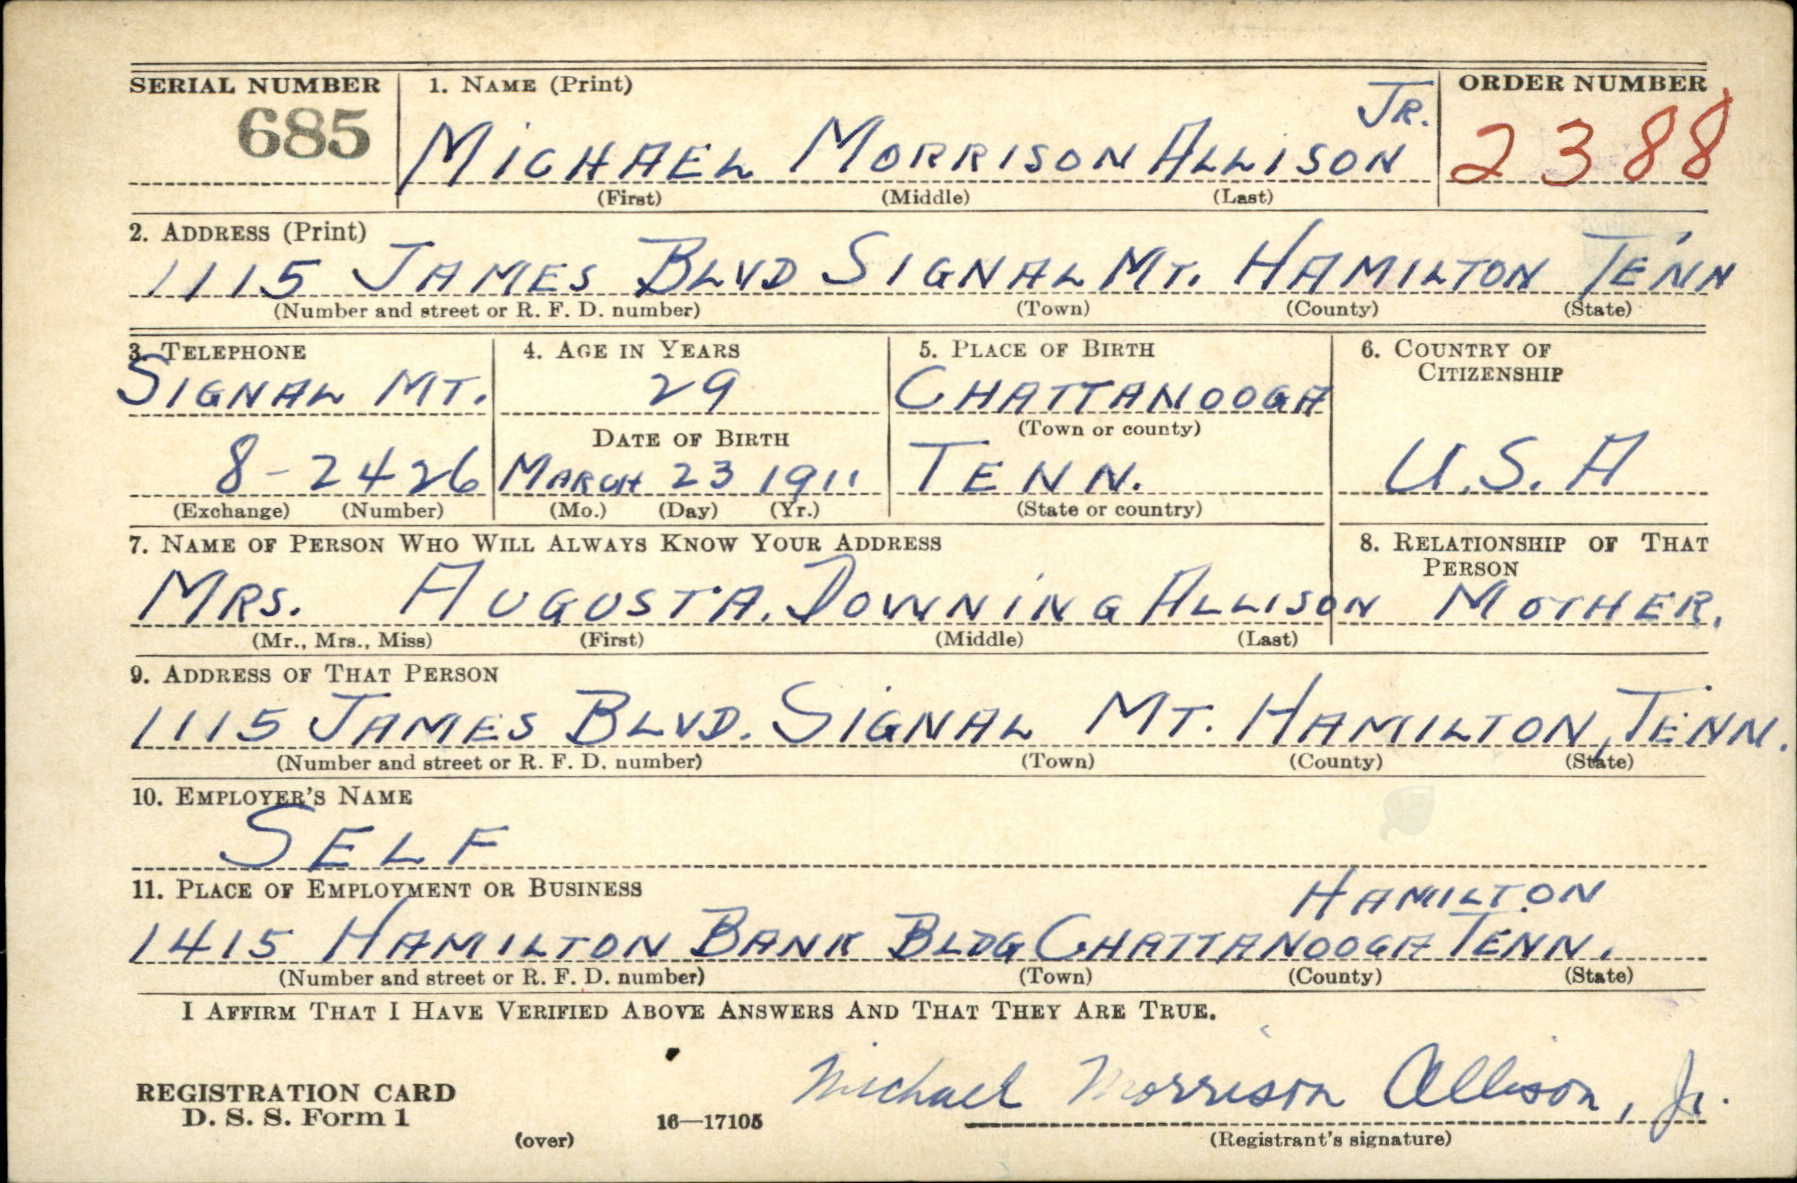 SERIAL NUMBER 1. NAME (Print) ORDER NUMBER
685 MICHAEL MORRISON ALLISON JR. 2388
(First) (Middle) (Last)
2. ADDRESS (Print)
1115 JAMES BLVD SIGNAL MT. HAMILTON TENN
(Number and street or R. F. D. number) (Town) (County) (State)
3. TELEPHONE 4. AGE IN YEARS 5. PLACE OF BIRTH 6. COUNTRY OF
CITIZENSHIP
SIGNAL MT. 29 CHATTANOOGA
DATE OF BIRTH (Town or county)
8-2426 MARCH 23 1911 TENN. U.S.A
(Exchange) (Number) (Mo.) (Day) (Yr.) (State or country)
7. NAME OF PERSON WHO WILL ALWAYS KNOW YOUR ADDRESS 8. RELATIONSHIP OF THAT
PERSON
MRS. AUGUSTA. DOWNING ALLISON MOTHER.
(Mr., Mrs., Miss) (First) (Middle) (Last)
9. ADDRESS OF THAT PERSON
1115 JAMES BLVD. SIGNAL MT. HAMILTON, TENN.
(Number and street or R. F. D. number) (Town) (County) (State)
10. EMPLOYER'S NAME
SELF
11. PLACE OF EMPLOYMENT OR BUSINESS
HAMILTON
1415 HAMILTON BANK BLDG CHATTANOOGA TENN.
(Number and street or R. F. D. number) (Town) (County) (State)
I AFFIRM THAT I HAVE VERIFIED ABOVE ANSWERS AND THAT THEY ARE TRUE.
Michael Morrison Allison, Jr.
REGISTRATION CARD
D. S. S. Form 1 16—17105
(over) (Registrant's signature)